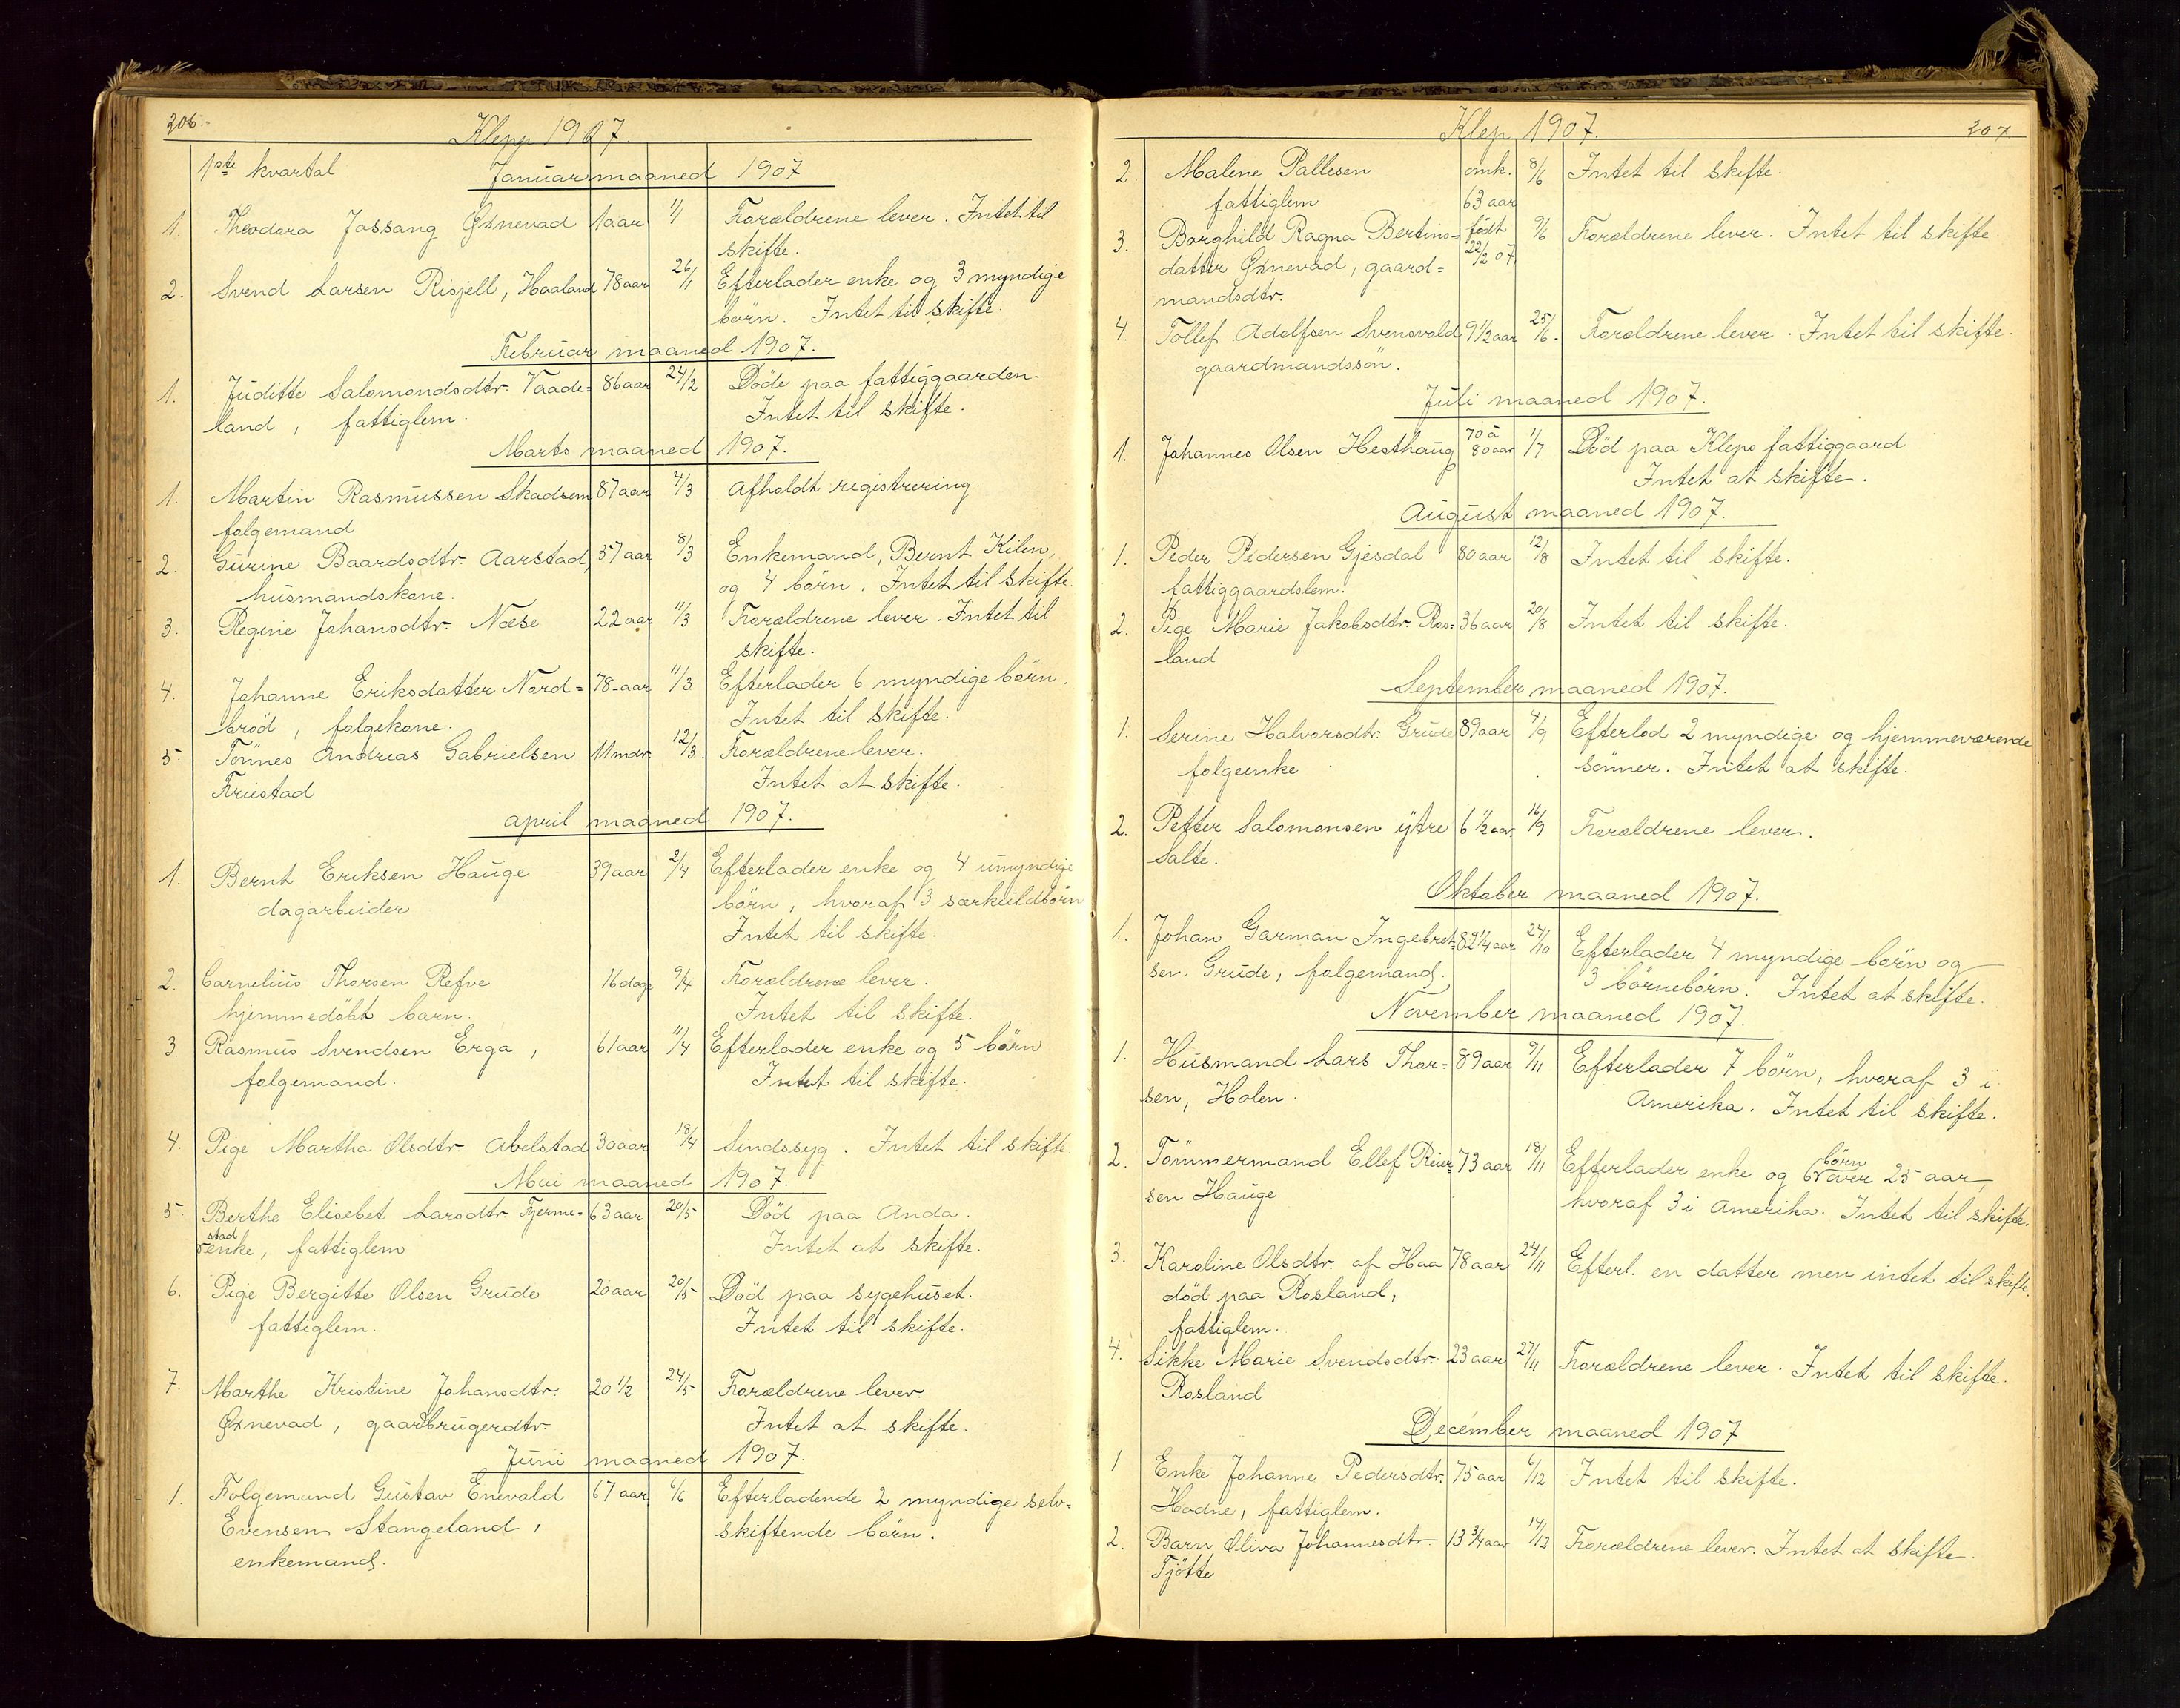 206.
Klepp 1907.
1ste kvartal
Januar maaned 1907
1. Theodora Jossang Øxnevad 1 aar 1/1 Forældrene lever. Intet til
skifte.
2. Svend Larsen Risjell, Haaland 78 aar 26/1 Efterlader enke og 3 myndige
börn. Intet til skifte.
Februar maaned 1907.
1. Juditte Salomondsdtr. Vaade= 86 aar 24/2 Döde paa fattiggaarden.
land, fattiglem. Intet til skifte.
Marts maaned 1907.
1. Martin Rasmussen Skadsem 87 aar 7/3 Afholdt registrering.
folgemand
2. Gurine Baardsdtr. Aarstad, 37 aar 8/3 Enkemand, Bernt Kilen,
husmandskone. og 4 börn. Intet til skifte.
3. Regine Johansdtr. Næse 22 aar 11/3 Forældrene lever. Intet til
skifte.
4. Johanne Eriksdatter Nord= 78 aar 11/3 Efterlader 6 myndige börn.
bröd, folgekone. Intet til skifte.
5. Tönnes Andreas Gabrielsen 11 mdr. 12/3. Forældrene lever.
Friestad Intet at skifte.
April maaned 1907.
1. Bernt Eriksen Hauge 39 aar 2/4 Efterlader enke og 4 umyndige
dagarbeider börn, hvoraf 3 særkuldbörn
Intet til skifte.
2. Cornelius Thorsen Refve 16 dage 9/4 Forældrene lever.
hjemmedöbt barn. Intet til skifte.
3. Rasmus Svendsen Erga, 61 aar 11/4 Efterlader enke og 5 börn
folgemand. Intet til skifte.
4. Pige Martha Olsdtr. Abelstad 30 aar 18/4 Sindssyg. Intet til skifte.
Mai maaned 1907.
5. Berthe Elisebet Larsdtr. Fjerme= 63 aar 20/5 Död paa Anda.
stad
enke, fattiglem Intet at skifte.
6. Pige Bergitte Olsen Grude 20 aar 20/5 Död paa sygehuset.
fattiglem. Intet til skifte.
7. Marthe Kristine Johansdtr. 20 1/2 24/5 Forældrene lever.
Øxnevad, gaarbrugerdtr. Intet at skifte.
Juni maaned 1907.
1. Folgemand Gustav Enevald 67 aar 6/6 Efterladende 2 myndige selv=
Evensen Stangeland, skiftende börn.
enkemand.
Klep 1907.
207
2 Malene Pallesen omk. 8/6 Intet til skifte.
fattiglem 63 aar
3. Borghild Ragna Bertins= födt 9/6 Forældrene lever. Intet til skifte.
datter Øxnevad, gaard= 22/2 07.
mandsdtr.
4. Tollef Adolfsen Svensvold 9 1/2 aar 25/6. Forældrene lever. Intet til skifte.
gaardmandssön.
Juli maaned 1907.
1. Johannes Olsen Hesthaug 70 à 80 aar 1/7 Död paa Kleps fattiggaard
Intet at skifte.
August maaned 1907.
1. Peder Pedersen Gjesdal 80 aar 12/8 Intet til skifte.
fattiggaardslem.
2. Pige Marie Jakobsdtr. Ros= 36 aar 20/8 Intet til skifte.
land
September maaned 1907.
1. Serine Halvorsdtr. Grude 89 aar 4/9 Efterlod 2 myndige og hjemmeværende
folgeenke sönner. Intet at skifte.
2. Petter Salomonsen ytre 6 1/2 aar 16/9 Forældrene lever.
Salte.
Oktober maaned 1907.
1. Johan Garman Ingebret= 82 1/4 aar 24/10 Efterlader 4 myndige börn og
sen Grude, folgemand. 3 börnebörn. Intet at skifte.
November maaned 1907.
1. Husmand Lars Thor= 89 aar 9/11 Efterlader 7 börn, hvoraf 3 i
sen, Holen. Amerika. Intet til skifte.
2. Tömmermand Ellef Reier= 73 aar 18/11 Efterlader enke og 6 börn over 25 aar,
sen Hauge hvoraf 3 i Amerika. Intet til skifte.
3. Karoline Olsdtr. af Haa 78 aar 24/11 Efterl. en datter men intet til skifte.
död paa Rosland,
fattiglem.
4. Sikke Marie Svendsdtr. 23 aar 27/11 Forældrene lever. Intet til skifte.
Rosland
December maaned 1907
1 Enke Johanne Pedersdtr. 75 aar 6/12 Intet til skifte.
Hodne, fattiglem.
2. Barn Oliva Johannesdtr. 13 3/4 aar 14/12 Forældrene lever. Intet at skifte.
Tjötte